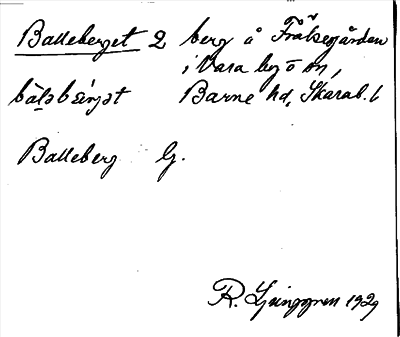 Balleberget 2 berg å Frälsegården
i Vara by o sn,
bàləbæ̀rjət Barne hd, Skarab. l
Balleberg G.
R. Ljunggren 1929